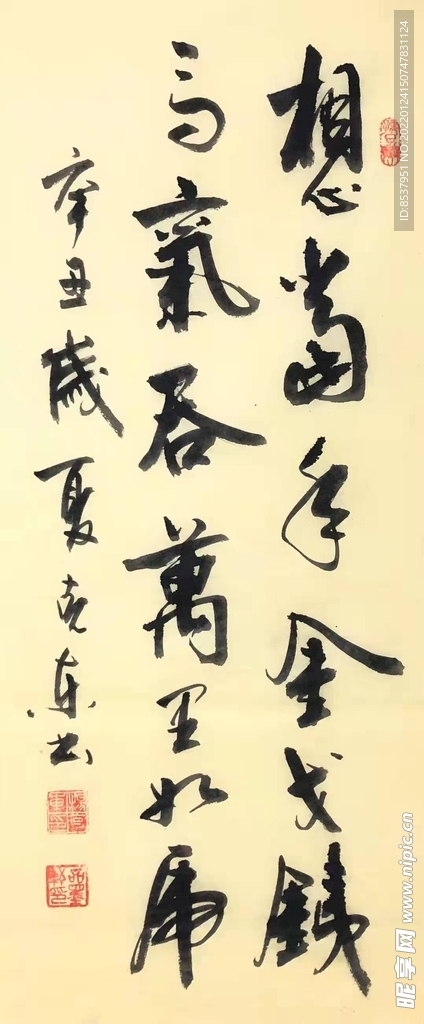 想當年金戈鐵
馬氣吞萬里如虎
辛丑歲夏克东书
ID:8537951 NO:20220124150747831124
昵享网 www.nipic.cn